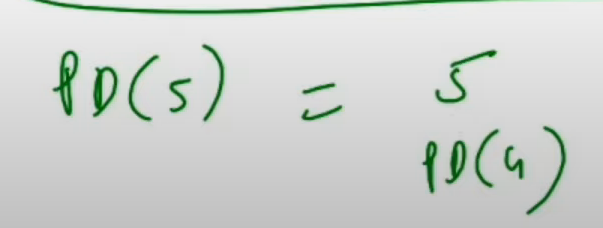 PD(5) = 5
PD(4)